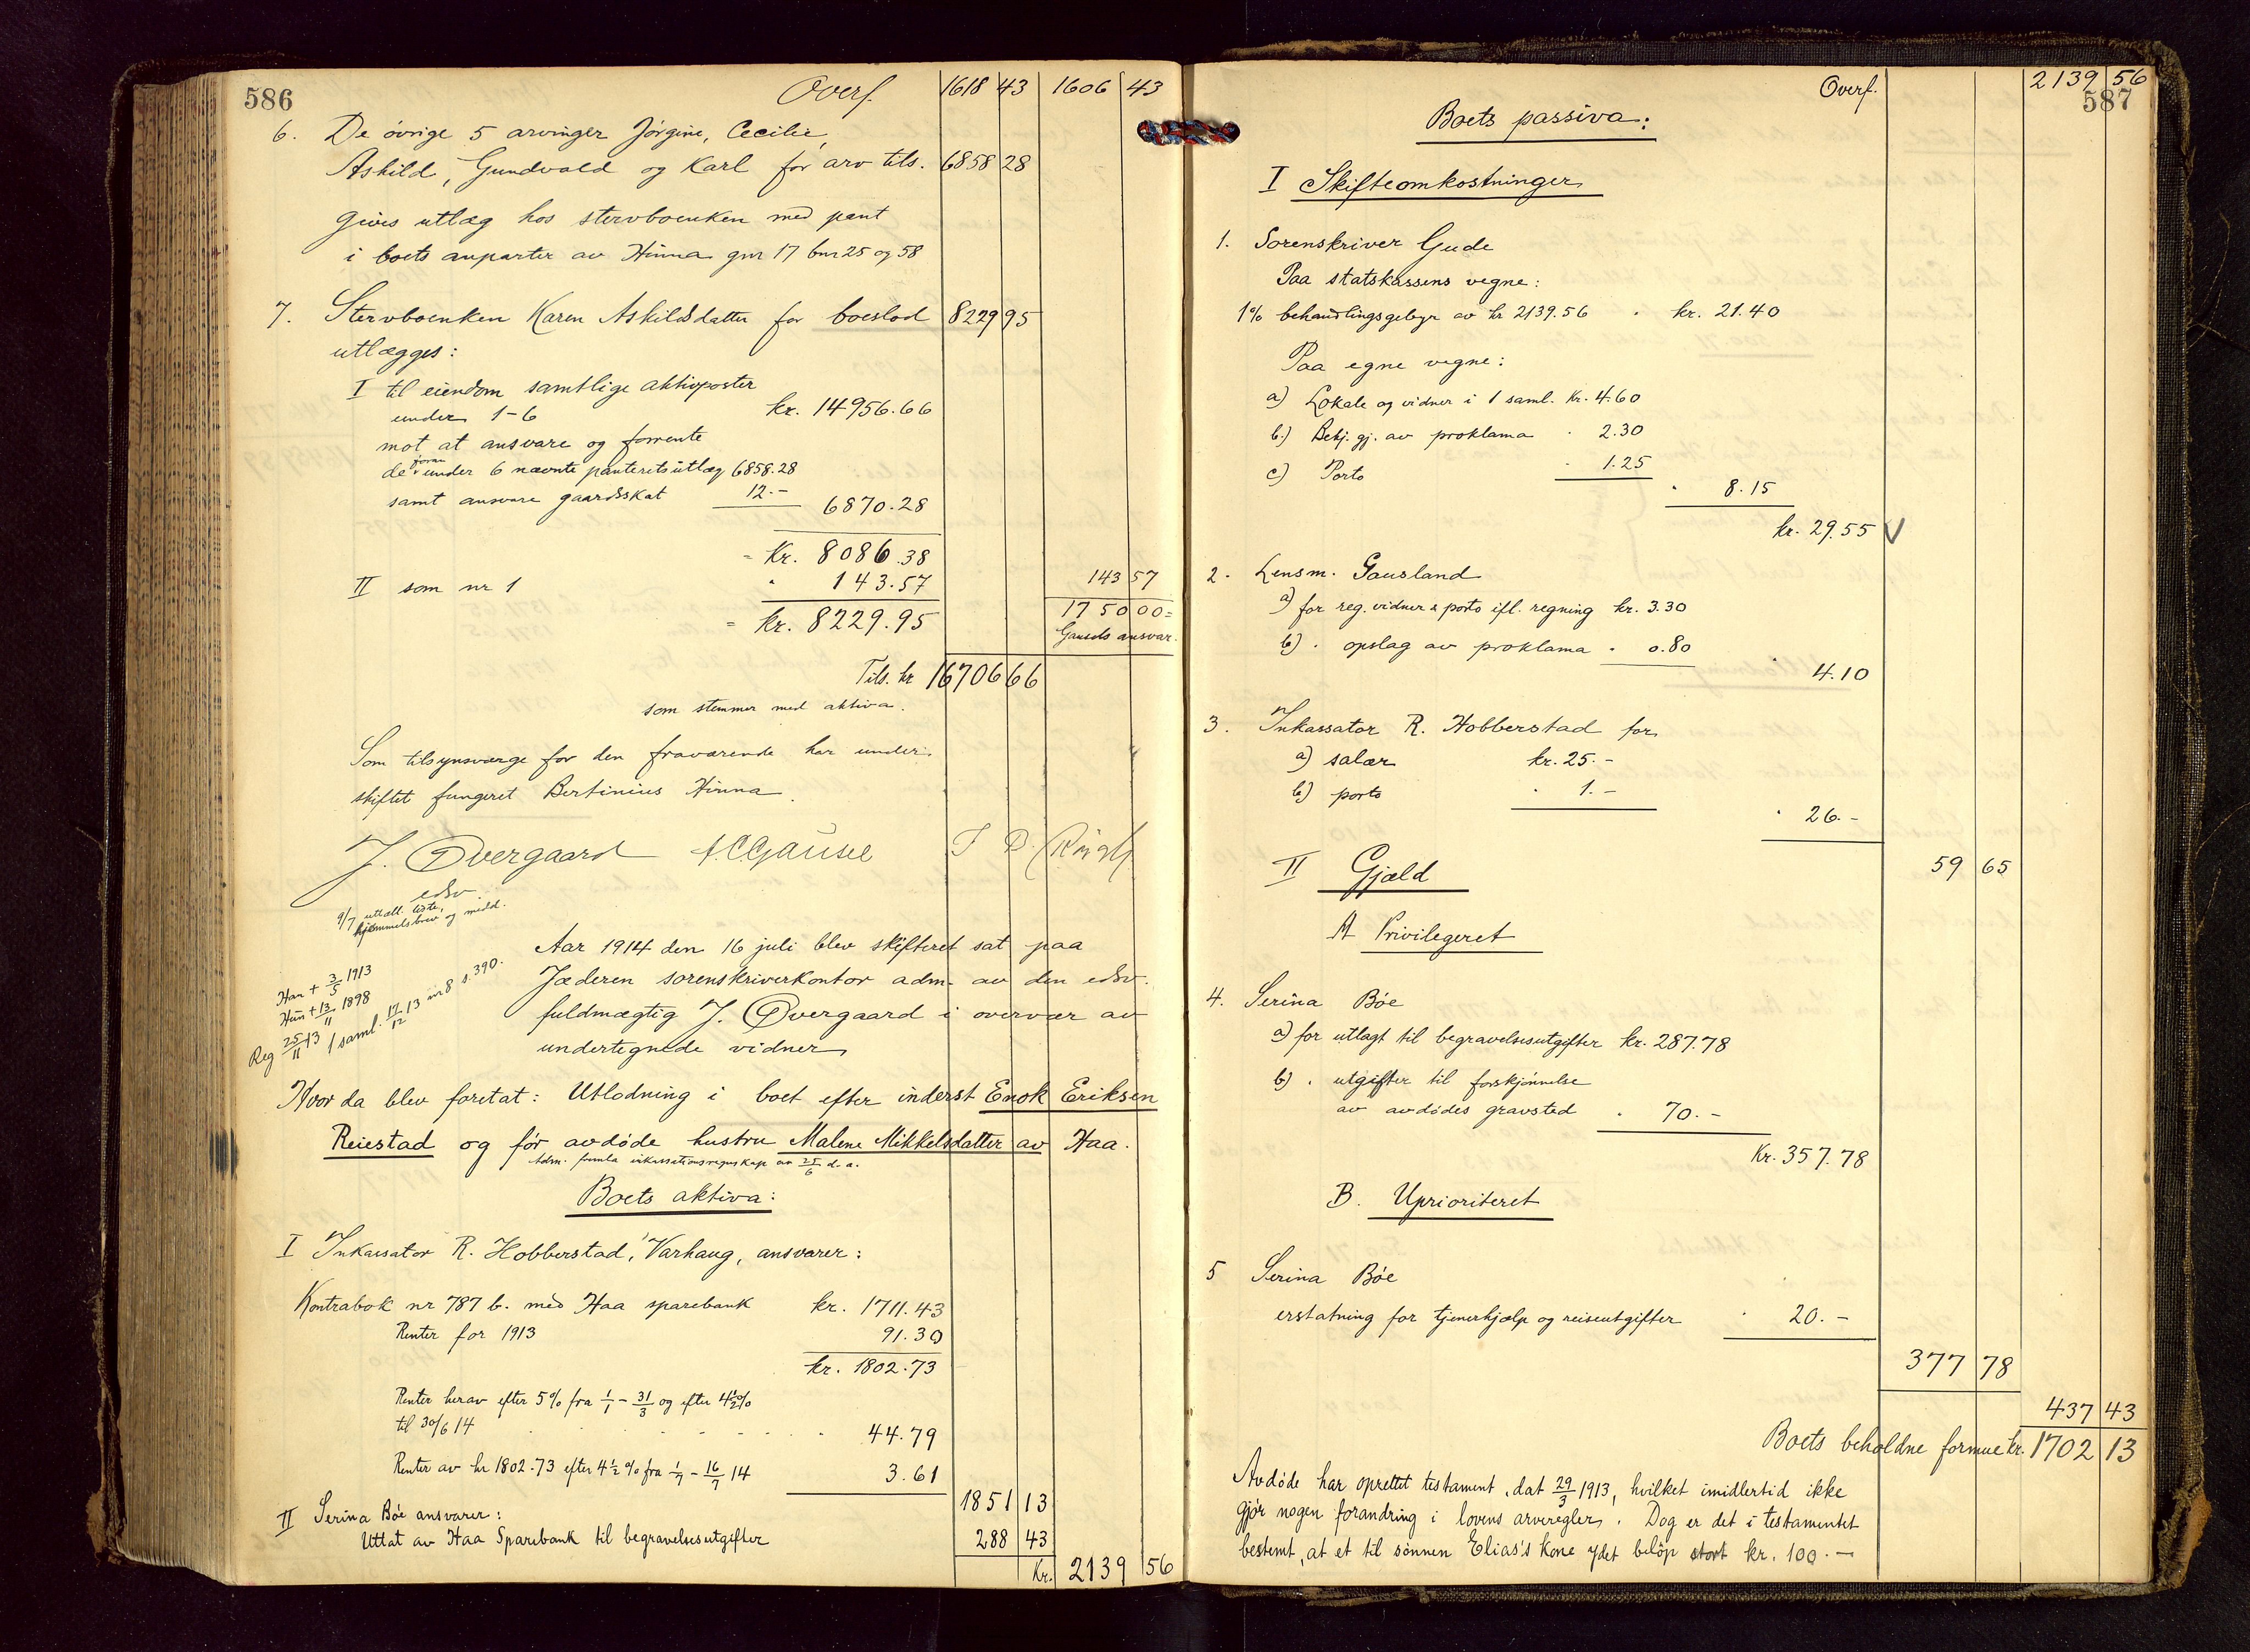 586
Overf. 1618 43 1606 43
6. De övrige 5 arvinger Jörgine, Cecilie,
Askild, Gundvald og Karl for arv tils. 6858 28
givis utlæg hos stervboenken med pant
i boets anparter av Hinna gnr 17 bnr 25 og 58
7. Stervboenken Karen Askildsdatter for boeslod 8229 95
utlægges:
I til eiendom samtlige aktivposter
under 1-6 kr. 14956.66
mot at ansvare og forrente
de foran under 6 nævnte panteretsutlæg 6858.28
samt ansvare gaardsskat 12.- 6870.28
= Kr. 8086.38
II som nr 1 " 143.57 143 57
= Kr. 8229.95 1750 00=
Gausels ansvar.
Tils. kr 16706 66
som stemmer med aktiva.
Som tilsynsværge for den fraværende har under
skiftet fungeret Bertinius Hinna.
J. Øvergaard A.C. Gausel
edsv
9/7 uttatt. liste,
hjemmelsbrev og midd.
Aar 1914 den 16 juli blev skifteret sat paa
Jæderen sorenskriverkontor adm. av den edsv.
fuldmægtig J. Øvergaard i overvær av
undertegnede vidner
Han + 3/5 1913
Hun + 13/11 1898
Reg 25/11 13 1 saml. 17/12 13 nr 8 s. 390.
Hvor da blev foretat: Utlodning i boet efter inderst Enok Eriksen
Reiestad og før avdöde hustru Malene Mikkelsdatter av Haa.
Adm. fremla inkassationsregnskap av 25/6 d. a.
Boets aktiva:
I Inkassator R. Hobberstad, Varhaug, ansvarer:
Kontrabok nr 787 b. med Haa sparebank kr. 1711.43
Renter for 1913 91.30
kr. 1802.73
Renter herav efter 5% fra 1/1 - 31/3 og efter 4 1/2 %
til 30/6 14 44.79
Renter av kr 1802.73 efter 4 1/2 % fra 1/7 - 16/7 14 3.61
1851 13
II Serina Böe ansvarer:
Uttat av Haa Sparebank til begravelsesutgifter 288 43
Kr. 2139 56
587
Overf. 2139 56
Boets passiva:
I Skifteomkostninger
1. Sorenskriver Gude
Paa statskassens vegne:
1% behandlingsgebyr av kr 2139.56 . kr. 21.40
Paa egne vegne:
a) Lokale og vidner i 1 saml. Kr. 4.60
b.) Bekj. gj. av proklama . 2.30
c) Porto . 1.25
" 8.15
kr. 29.55 V
2. Lensm. Gausland
a) for reg. vidner & porto ifl. regning kr. 3.30
b) . opslag av proklama . 0.80
" 4.10
3. Inkassator R. Hobberstad for
a) salær kr. 25.-
b) porto . 1.-
" 26.-
59 65
II Gjæld
A Privilegeret
4. Serina Böe
a) for utlagt til begravelsesutgifter kr. 287.78
b) . utgifter til forskjönnelse
av avdödes gravsted . 70.-
Kr. 357.78
B. Uprioriteret
5 Serina Böe
erstatning for tjenerhjælp og reiseutgifter " 20.-
377 78
437 43
Boets beholdne formue kr. 1702 13
Avdöde har oprettet testament, dat 29/3 1913, hvilket imidlertid ikke
gjör nogen forandring i lovens arveregler. Dog er det i testamentet
bestemt, at et til sönnen Elias's kone ydet belöp stort kr. 100.-